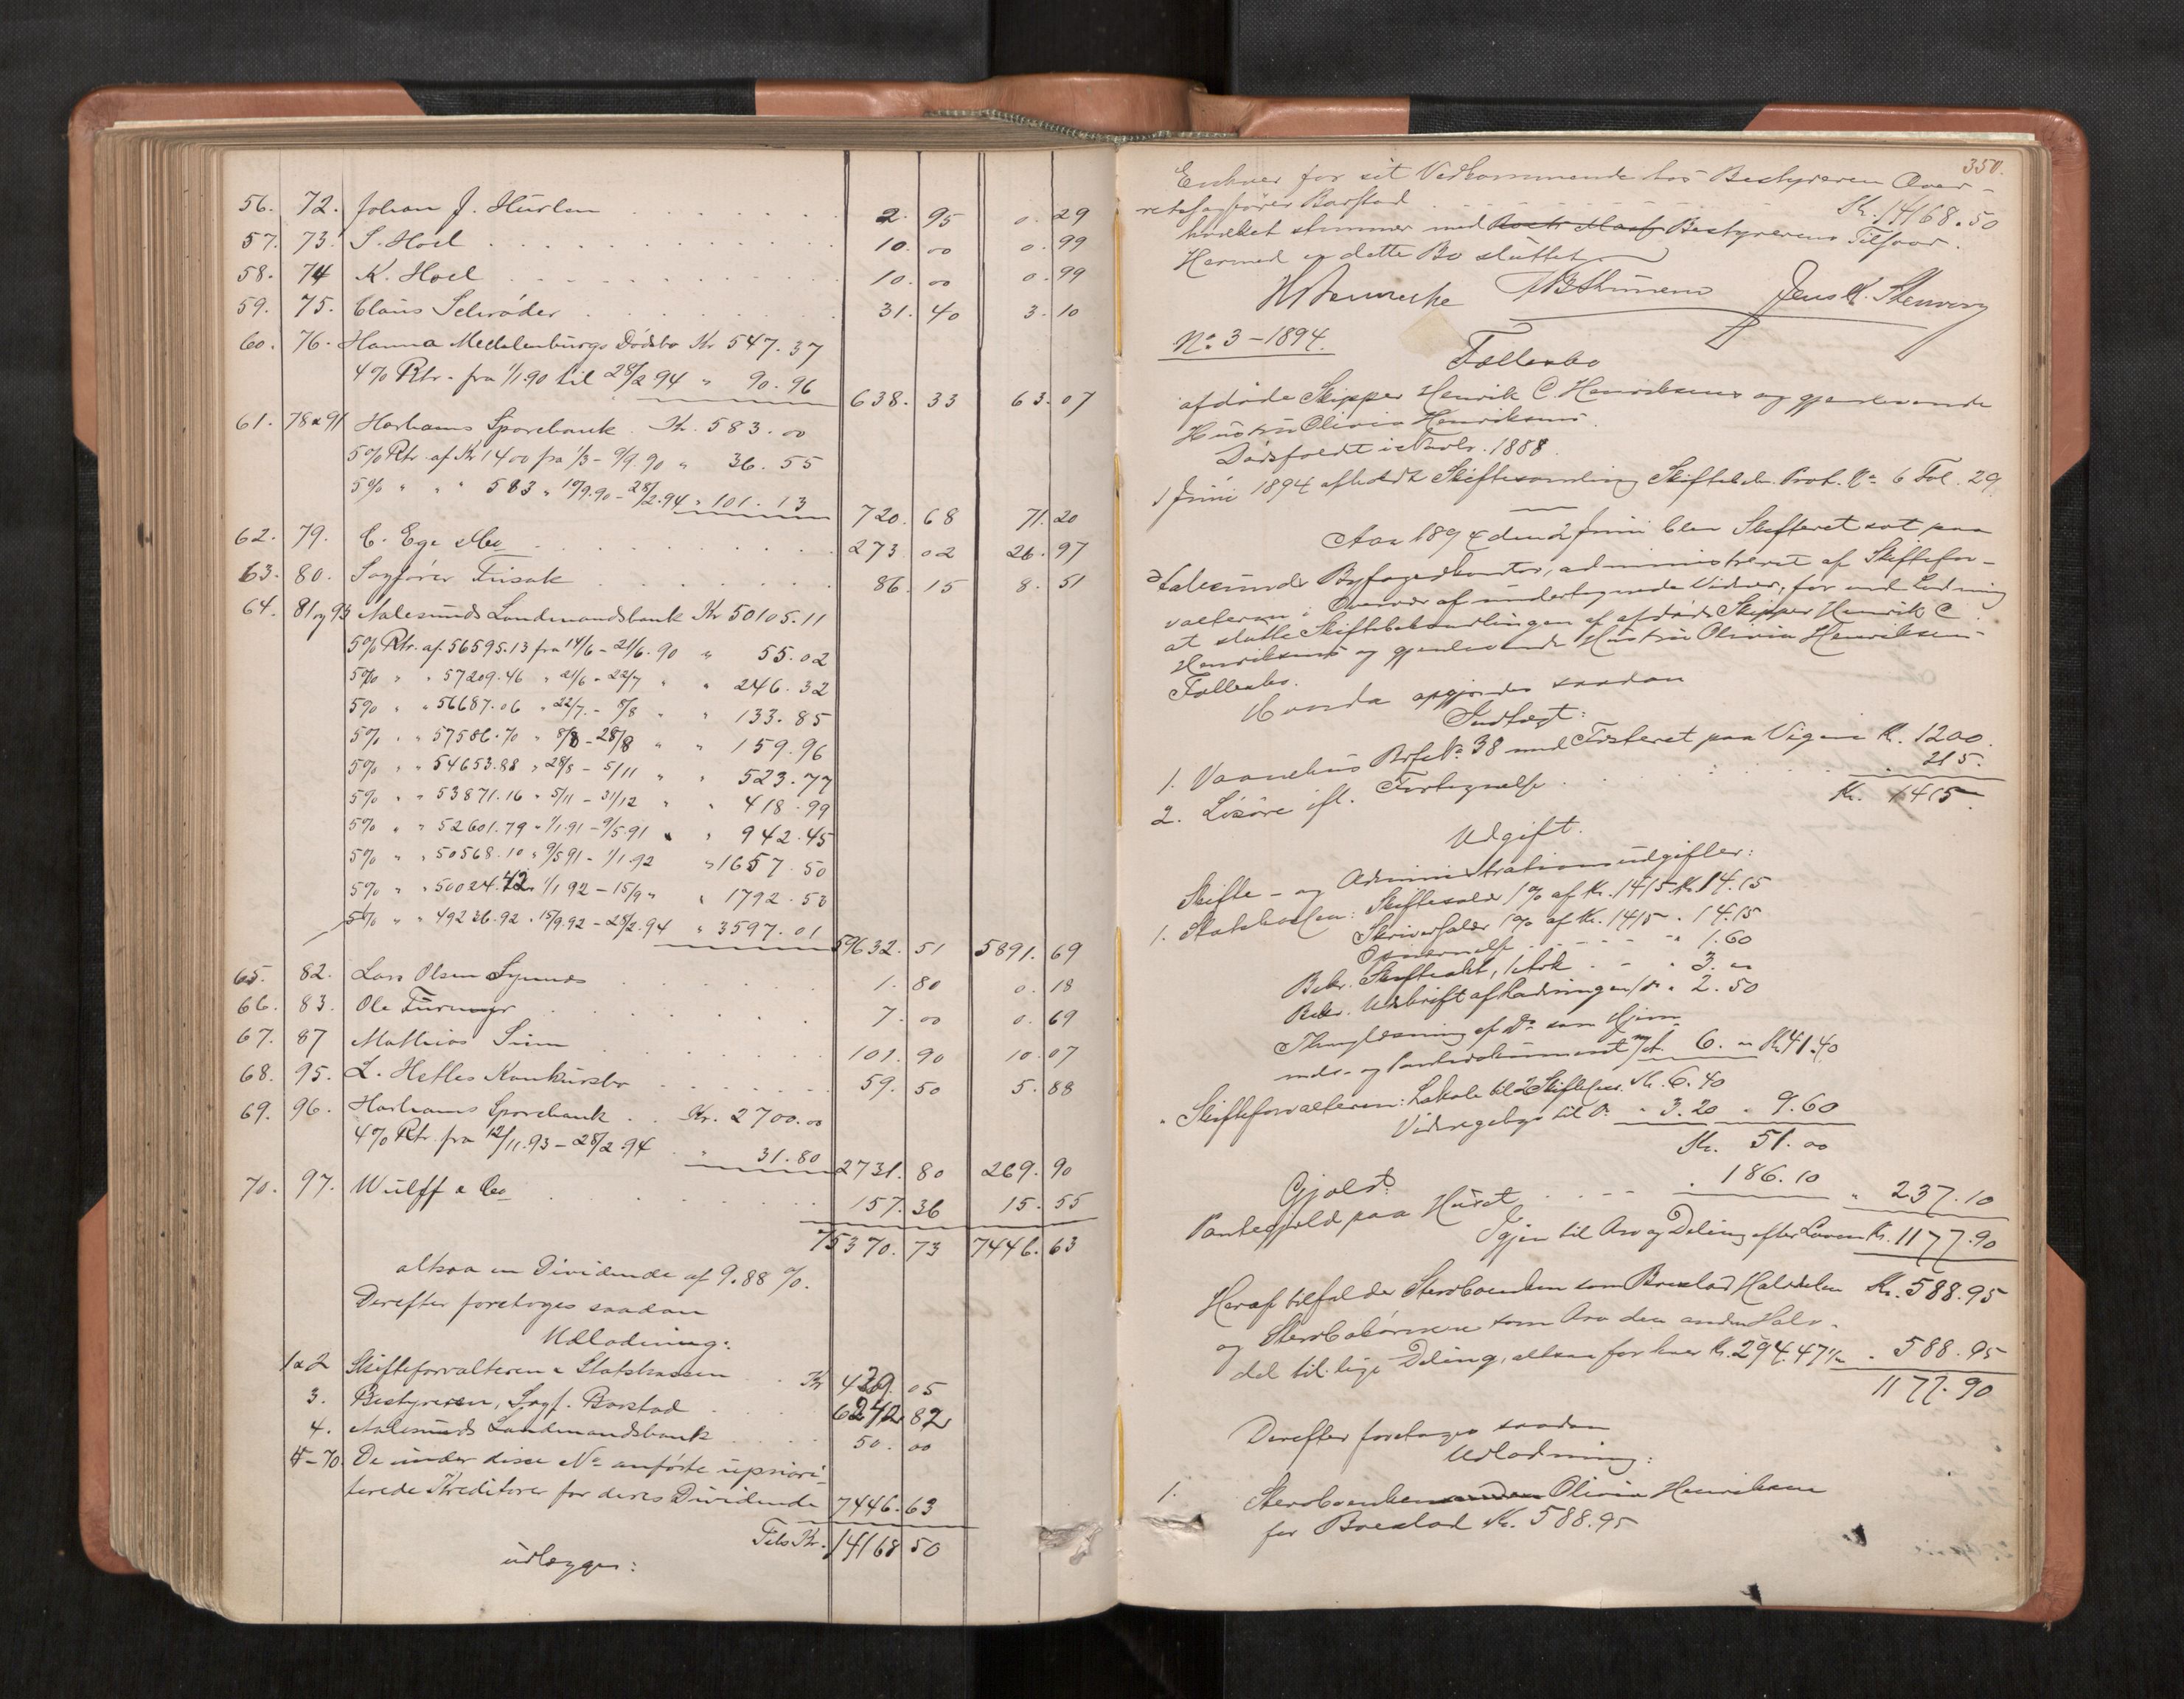 56. 72. Johan J. Hurlen . . . . . . 2. 95 0. 29
57. 73. S. Hoel . . . . . . 10. 00 0. 99
58. 74 K. Hoel . . . . . . 10. 00 0. 99
59. 75. Claus Schrøder . . . . . . 31. 40 3. 10
60. 76. Hanna Mecklenburgs Dødsbo Kr 547. 37
4% Rtr. fra 1/1.90 til 28/2 94 " 90. 96 638. 33 63. 07
61. 78 & 91 Harhams Sparebank . Kr. 583. 00
5% Rtr. af Kr 1400 fra 1/3 - 9/9 90 " 36. 55
5% " " " 583 " 10/9.90 - 28/2.94 " 101. 13 720. 68 71. 20
62. 79. C. Ege & Co . . . . . . 273 02 26. 97
63. 80. Sagfører Frisak . . . . . . 86. 15 8. 51
64. 81 og 93 Aalesunds Landmandsbank Kr 50105.11
5% Rtr. af 56595.13 fra 14/6 - 21/6. 90 " 55. 02
5% " " 57209.46 " 21/6 - 22/7 " " 246. 32
5% " " 56687.06 " 22/7. - 8/8 " " 133. 85
5% " " 57586.70 " 8/8 - 28/8 " " 159. 96
5% " " 54653.88 " 28/8 - 5/11 " " 523. 77
5% " " 53871.16 " 5/11 - 31/12 " " 418. 99
5% " " 52601.79 " 1/1.91 - 9/5.91 " " 942. 45
5% " " 50568.10 " 9/5 91 - 1/1.92 " 1657. 50
5% " " 50024.42 " 1/1 92 - 15/9 " " 1792. 53
5% " " 49236.92 " 15/9.92 - 28/2.94 " 3597. 01 59632. 51 5891. 69
65. 82. Lars Olsen Synnes . . . . . . 1. 80 0. 18
66. 83. Ole Furmyr . . . . . . 7. 00 0. 69
67. 87 Mathias Sim . . . . . . 101. 90 10. 07
68. 95. L. Hetles Konkursbo . . . . . . 59. 50 5. 88
69. 96. Harhams Sparebank . . Kr. 2700. 00
4% Rtr. fra 12/11.93 - 28/2.94 " 31. 80 2731. 80 269. 90
70. 97. Wulff & Co . . . . . . 157. 36 15. 55
75370. 73 7446. 63
altsaa en Dividende af 9.88 %.
Derefter foretoges saadan
Udlodning:
1 & 2 Skifteforvalteren & Statskassen . . Kr 429. 05
3. Bestyreren, Sagf. Barstad . . . 6242 82
4. Aalesunds Landmandsbank . . . 50. 00
5-70. De under disse No anførte uprivri-
terede Kreditorer for deres Dividende 7446. 63
Tils Kr. 14168 50
udlægges:
350.
Enhver for sit Vedkommende hos Bestyreren Over-
retssagfører Barstad . . . . . . Kr. 14168. 50
hvilket stemmer med Bestyrerens Tilsvar.
Hermed er dette Bo sluttet.
Jens K. Stenvorg
No 3 - 1894.
Fællesbo
afdøde Skipper Henrik C. Henriksens og gjenlevende
Hustru Olivia Henriksens.
Dødsfaldt i Novbr. 1888.
1 Juni 1894 afholdt Skiftesamling Skiftebeh. Prot. No 6 Fol. 29.
Aar 1894 den 2 Juni blev Skifteret sat paa
Aalesunds Byfogedkontor, administreret af Skiftefor-
valteren i Overvær af undertegnede Vidner, for ved Lodning
at slutte Skiftebehandlingen af afdøde Skipper Henrik C.
Henriksens og gjenlevende Hustru Olivia Henriksens
Fællesbo.
Conto opgjordes saadan
Indtægt:
1. Vaanehus Brfr No 38 med Festeret paa Vigen Kr. 1200.
2. Løsøre ifl. Fortegnelse . . . . . . " 215.
Kr. 1415.
Udgift.
Skifte- og Administrationsudgifter:
1. Statskassen: Skiftesalær 1% af Kr. 1415. Kr. 14.15
Skriversalær 1% af Kr. 1415 . 14.15
. . . . " 1. 60
Bekr. Skifteakt, 1 Ark . - . 3. "
Bekr. Udskrift af Lodningen, 1 Do " 2. 50
Thinglæsning af Do som Hjem-
mels- og Panterdokument 6. " Kr. 41. 40
" Skifteforvalteren: Lokale til 2 Skiftes. Kr. 6. 40
Vidnegebyr til Do " 3. 20 . 9. 60
Kr. 51. 00
Gjæld:
Pantegjæld paa Huset . . . . . 186. 10 " 237. 10
Igjen til Arv og Deling efter Loven Kr. 1177. 90
Heraf tilfalder Stervboenken som Boeslod Halvdelen Kr. 588. 95
og Stervbobørnene som Arv den anden Halv-
del til lige Deling, altsaa for hver Kr. 294.47½ . 588. 95
1177. 90
Derefter foretoges saadan
Udlodning:
1. Stervboenken Olivia Henriksen
for Boeslod Kr. 588. 95